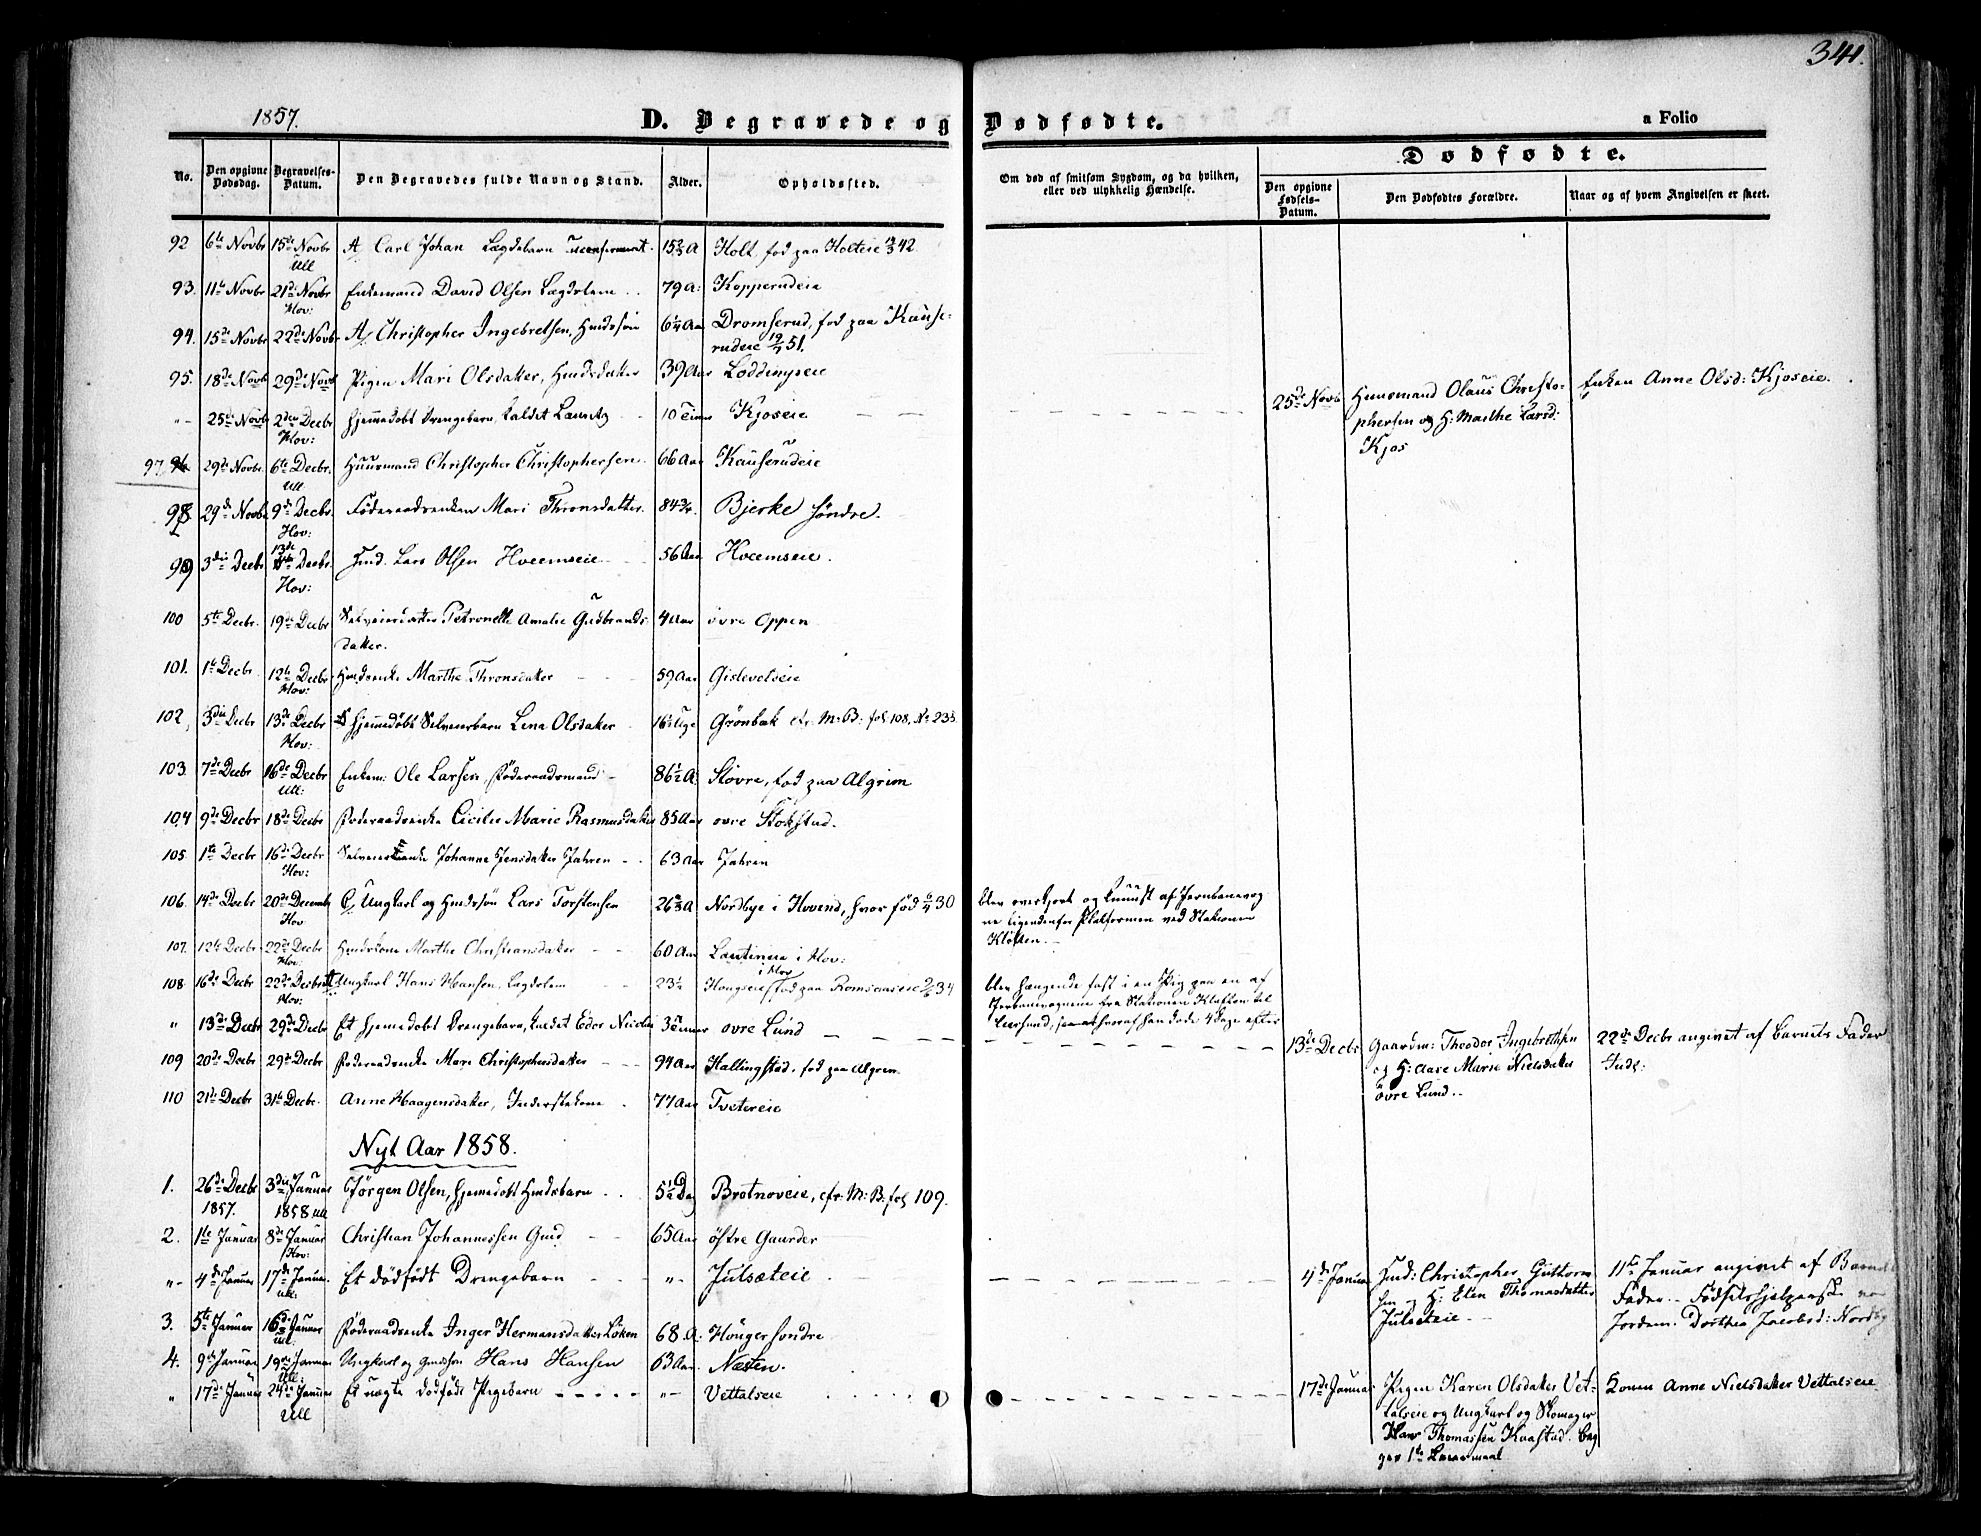 341.
1857.
D. Begravede og Dødfødte.
a Folio
No.
Den opgivne Dødsdag.
Begravelses-Datum.
Den Begravedes fulde Navn og Stand.
Alder.
Opholdssted.
Om død af smitsom Sygdom, og da hvilken,
eller ved ulykkelig Hændelse.
Dødfødte.
Den opgivne Fødsels-Datum.
Den Dødfødtes Forældre.
Naar og af hvem Angivelsen er skeet.
92 6te Novbr 15de Novbr Carl Johan Lægdebarn uconfirmeret. 15 A Holt, fød paa Holteie 42.
Ull
93. 11te Novbr 21de Novbr Enkemand David Olsen Lægdslem 79 A: Kopperudeie
Hov:
94. 15de Novbr 22de Novbr Christopher Ingebretsen, Huusmands Søn 6¼ Aar Dromserud, fød paa Kauserudeie 51.
95. 18de Novb 29de Novb Pigen Mari Olsdatter, 39 Aar Loddengseie
"- 25de Novb 2den Decbr Hjemmedøbt Drengebarn, kaldet Lauritz 10 Timer Kjoseie
Hov:
25de Novb Huusmand Olaus Christophersen og H: Marthe Larsd: Kjos
Enken Anne Olsd: Kjoseie.
97. 29de Novbr 6te Decbr. Huusmand Christopher Christophersen 66 Aar Kauserudeie
Ull
98 29de Novbr 9de Decbr. Føderaadsenken Mari Thronsdatter. 84¾ Bjerke søndre.
Hov:
99 3die Decbr 13de Decbr. Lars Olsen Hveemseie 56 Aar Hveemseie.
Hov:
100 5te Decbr. 19de Decbr Petronelle Amalie Gudbrands-
datter. 4 Aar øvre Oppen
101. 1te Decbr. 12te Decbr Marthe Thronsdatter 59 Aar Gislevolseie
Hov:
102, 3die Decbr 13de Decbr Hjemmedøbt Selveierbarn Lena Olsdatter 16 Uge Grønbæk cfr. M: B: fol 108, No 233
Hov:
103. 7de Decbr 16de Decbr Enkem: Ole Larsen, Føderaadsmand 86½ A: Støvre, fød paa Algrim
Ull:
104 9de Decbr 18de Decbr Føderaadsenke Cicilie Marie Rasmusdatter 85 Aar øvre Stokstad.
105. 1te Decbr 16de Decbr Johanne Jensdatter Jahren 63 Aar Jahren
Hov:
106. 14de Decbr 20de Decembr Ungkarl og Lars Torstensen 26 A Nordbye i Hovind, hvor fød 30
Hov
Blev overkjørt og knuust af Jernbanevog
ne ligendefor Platformen ved Stationen
Kløften.
107. 12te Decbr. 22de Decbr Marthe Christiansdatter 60 Aar i Hov:
Hov:
108 16de Decbr 22de Decbr Ungkarl Hans Hansen, Lægdslem 23½ Hougseie i Hov fød paa Romsaaseie 34
Hov:
Blev hængende fast i en paa en af
Jernbanevognene fra Stationen Kløften til
Leersund, hvoraf han døde 4 Dage efter
" 13de Decbr 29de Decbr Et Hjemmedøbt Drengebarn, kaldet Edor Nicolai 3 Timer øvre Lund
13de Decbr Gaardm: Theodor Ingebrethsen
og H: Aase Marie Nielsdatter
øvre Lund.
22de Decbr angivet af Barnets Fader
109 20de Decbr 29de Decbr Føderaadsenke Mari Christophersdatter 94 Aar Hallingstad. fød paa Algrim
110 21de Decbr 31te Decbr. Anne Haagensdatter, Inderstekone 77 Aar Tvetereie
Nyt Aar 1858.
1. 26de Decbr 1857. 3die Januar 1858 Ull Jørgen Olsen, Hjemmedøbt 5½ Dag Brotnoveie, cfr: M: B: fol 109.
2. 1te Januar 8de Januar Christian Johannessen 65 Aar østre Gaarder
Hov:
"- 4de Januar 17de Januar Et dødfødt Drengebarn "- Julsæteie.
Ull:
4de Januar Christopher Guttorm-
sen og H: Elen Thomasdatter
Julsæteie.
11te Januar angivet af Barnets
Fader. Fødselshjelperske var
Jordem. Dorthea Jacobsd: Nordby
3. 5te Januar 16de Januar Føderaadsenke Inger Hermansdatter Løken 68. A. Houger søndre
Ull.
4. 9de Januar 19de Januar Ungkarl og Hans Hansen 63 Aar. Næsten.
Ull:
" 17de Januar 24de Januar Et uægte dødfødt Pigebarn "- Vettalseie
Ull
17de Januar Pigen Karen Olsdatter Vet-
talseie og Ungkarl og Skomager
Hans Thomassen Kaastad. Beg
ges 1te Leiermaal
Konen Anne Nielsdatter Vettalseie